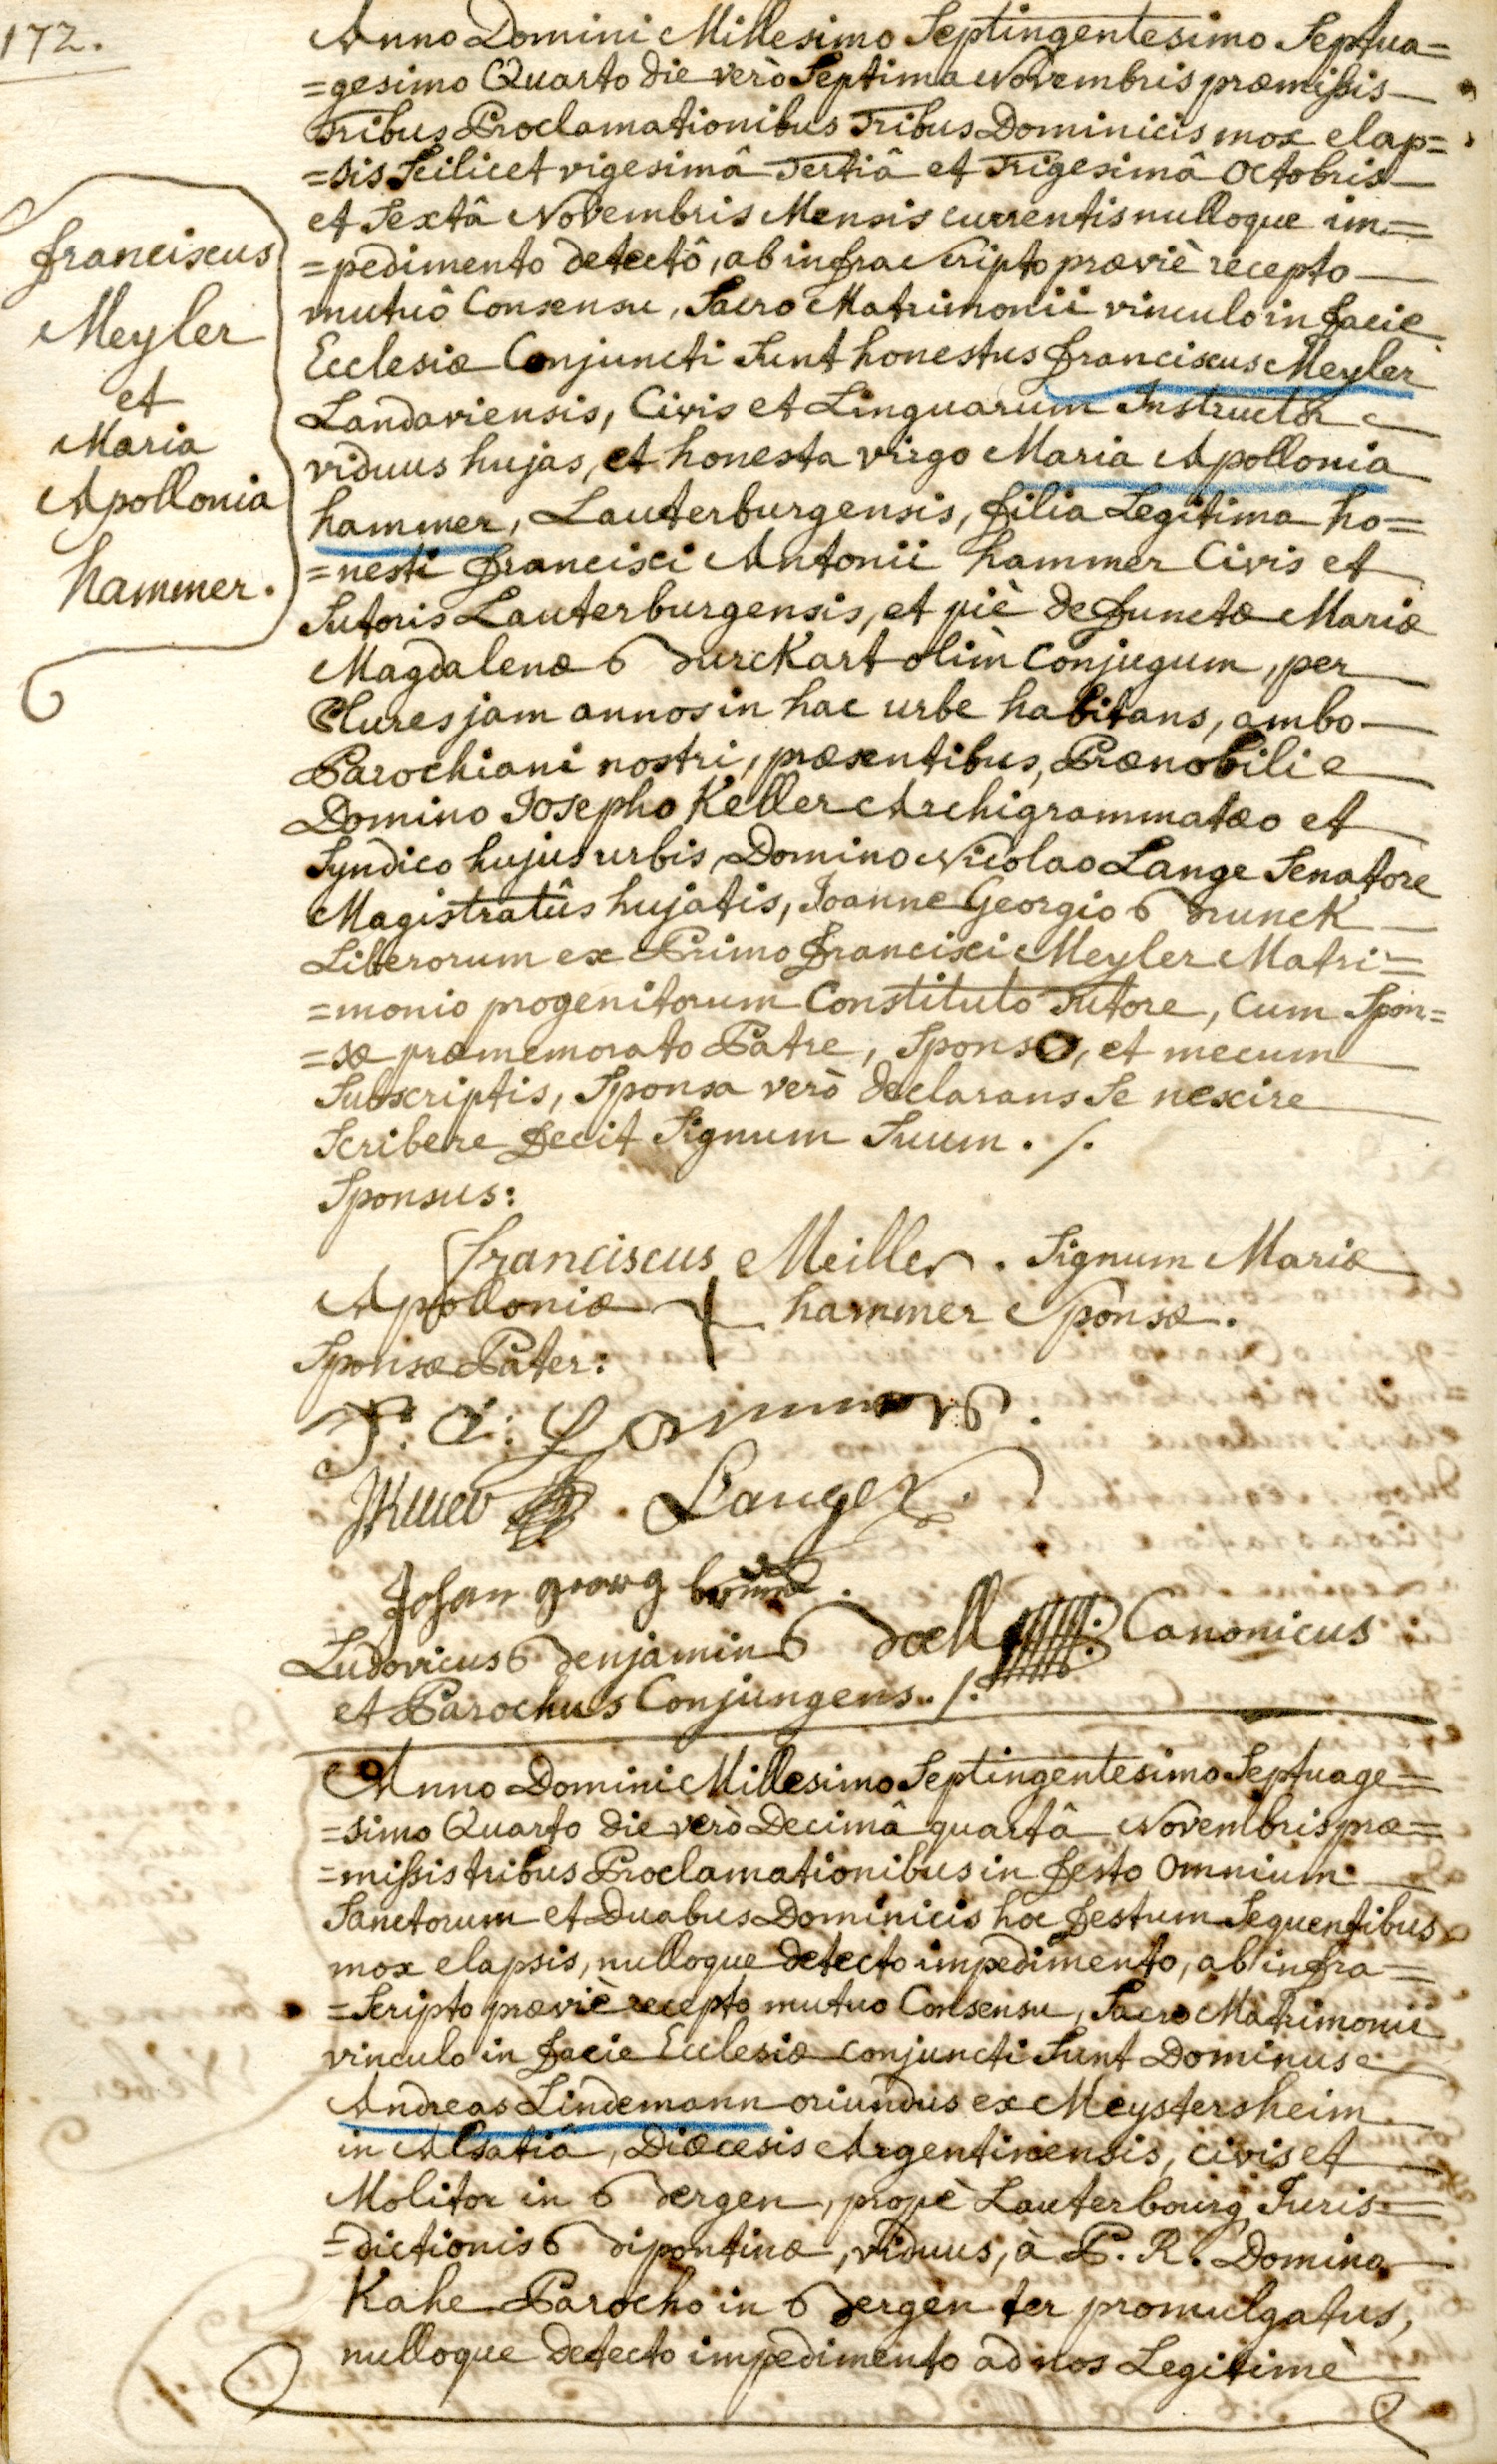 172.
Anno Domini Millesimo Septingentesimo Septua=
=gesimo Quarto die verò Septima Novembris præmissis
Tribus Proclamationibus Tribus Dominicis mox elap=
=sis Scilicet vigesimâ Tertiâ et Trigesimâ Octobris
et Sextâ Novembris Mensis currentis nulloque im=
=pedimento detectô, ab infra Scripto præviè recepto
mutuô Consensu, Sacro Matrimonii vinculo in facie
Ecclesiæ Conjuncti Sunt honestus franciscus Meyler
Landaviensis, Civis et Linguarum Instructor
viduus hujas, et honesta virgo Maria Apollonia
hammer, Lauterburgensis, filia Legitima ho=
=nesti francisci Antonii hammer Civis et
Sutoris Lauterburgensis, et piè defunctæ Mariæ
Magdalenæ Burckart olim Conjugum, per
Plures jam annos in hac urbe habitans, ambo
Parochiani nostri, præsentibus, Prænobili
Domino Josepho Keller Archigrammatæo et
Syndico hujus urbis, Domino Nicolao Lange Senatore
Magistratûs hujatis, Joanne Georgio Brunck
Liberorum ex Primo francisci Meyler Matri=
=monio progenitorum Constituto Tutore, Cum Spon=
=sæ præmemorato Patre, Sponso, et mecum
Subscriptis, Sponsa verò declarans Se nescire
Scribere fecit Signum Suum ./.
franciscus
Meyler
et
Maria
Apollonia
hammer.
Sponsus:
franciscus Meiller. Signum Mariæ
Apolloniæ + hammer Sponsæ.
Sponsæ Pater:
F: A: Hammer.
JKeller Lange.
Johan georg
Ludovicus Benjamin Boell Canonicus
et Parochus Conjungens ./.
Anno Domini Millesimo Septingentesimo Septuage=
=simo Quarto die verò Decimâ quartâ Novembris præ=
=missis tribus Proclamationibus in festo Omnium
Sanctorum et Duabus Dominicis hoc festum Sequentibus
mox elapsis, nulloque detecto impedimento, ab infra=
=Scripto præviè recepto mutuo Consensu, Sacro Matrimonii
vinculo in facie Ecclesiæ conjuncti Sunt Dominus
Andreas Lindemann oriundus ex Meystersheim
in Alsatiâ, Diœcesis Argentinensis, civis et
Molitor in Bergen, propè Lauterbourg, Juris=
=dictionis Bipontinæ, viduus, à P. R. Domino
Kahe Parocho in Bergen ter promulgatus,
nulloque detecto impedimento ad nos Legitimè